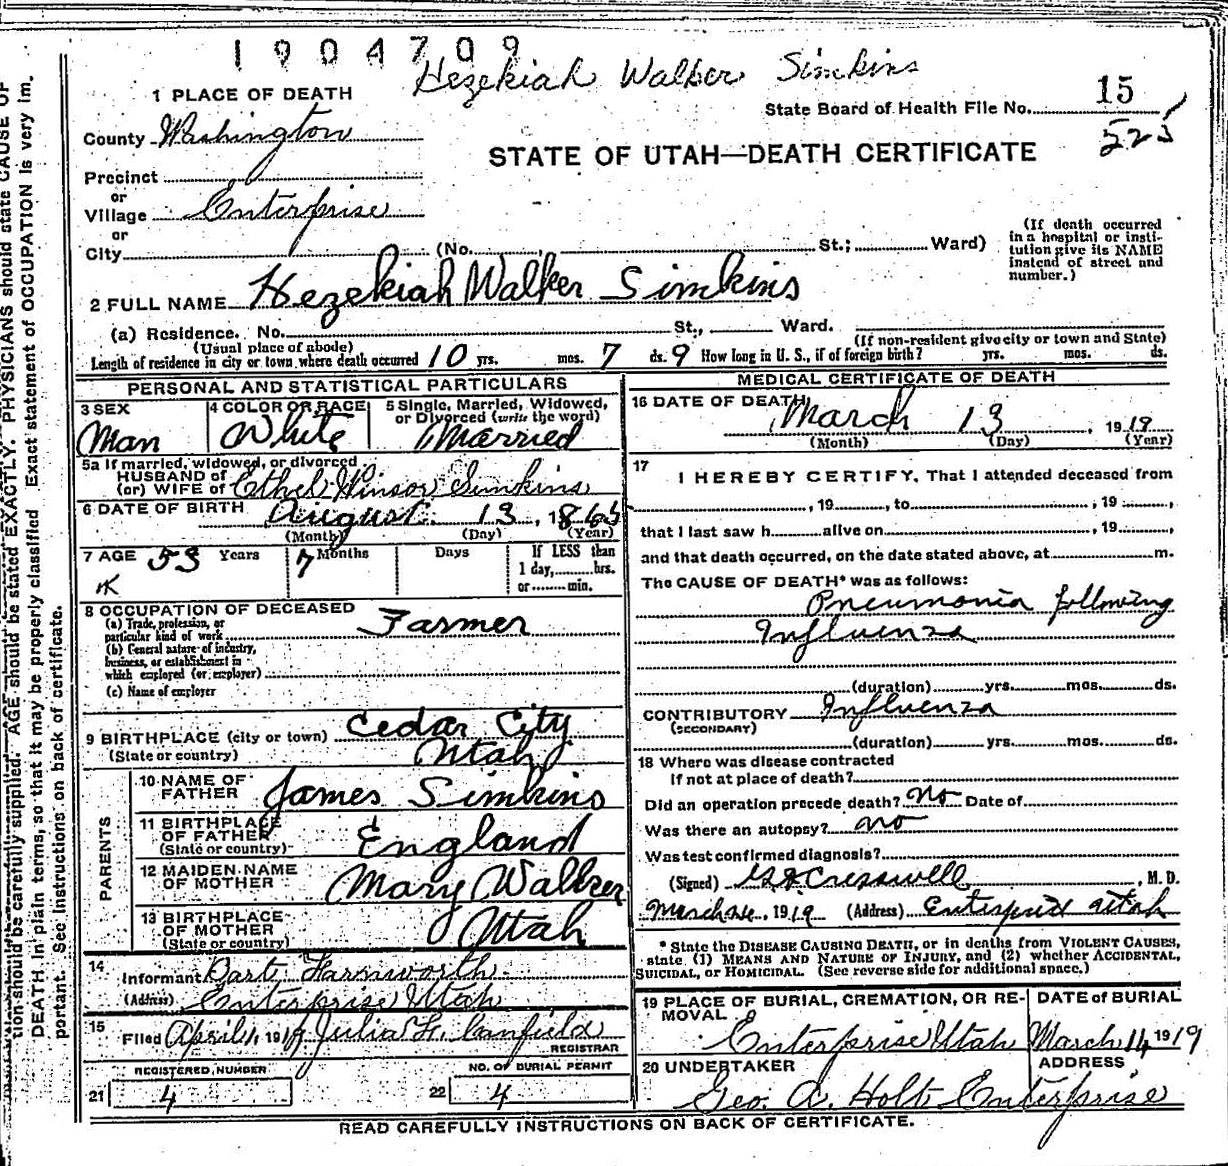 1904709
Hezekiah Walker Simkins
1 PLACE OF DEATH
State Board of Health File No. 15
County Washington
525
STATE OF UTAH—DEATH CERTIFICATE
Precinct
or
Village Enterprise
or
City (No. St.; Ward)
(If death occurred in a hospital or insti-
tution give its NAME instead of street and number.)
2 FULL NAME Hezekiah Walker Simkins
(a) Residence. No. St., Ward.
(Usual place of abode) (If non-resident give city or town and State)
Length of residence in city or town where death occurred 10 yrs. mos. 7 ds. 9 How long in U. S., if of foreign birth? yrs. mos. ds.
PERSONAL AND STATISTICAL PARTICULARS
3 SEX Man
4 COLOR OR RACE White
5 Single, Married, Widowed, or Divorced (write the word) Married
5a If married, widowed, or divorced
HUSBAND of
(or) WIFE of Ethel Winsor Simkins
6 DATE OF BIRTH August 13, 1865
(Month) (Day) (Year)
7 AGE 53 Years 7 Months Days If LESS than
1 day, hrs.
or min.
8 OCCUPATION OF DECEASED
(a) Trade, profession, or
particular kind of work Farmer
(b) General nature of industry,
business, or establishment in
which employed (or employer)
(c) Name of employer
9 BIRTHPLACE (city or town) Cedar City
(State or country) Utah
PARENTS
10 NAME OF FATHER James Simkins
11 BIRTHPLACE OF FATHER England
(State or country)
12 MAIDEN NAME OF MOTHER Mary Walker
13 BIRTHPLACE OF MOTHER Utah
(State or country)
14 Informant Bart Farnworth
(Address) Enterprise Utah
15 Filed April 1, 1919 Julia F. Canfield
REGISTRAR
REGISTERED NUMBER
NO. OF BURIAL PERMIT
21 4 22 4
MEDICAL CERTIFICATE OF DEATH
16 DATE OF DEATH March 13, 1919
(Month) (Day) (Year)
17 I HEREBY CERTIFY, That I attended deceased from
, 19 , to , 19 ,
that I last saw h alive on , 19 ,
and that death occurred, on the date stated above, at m.
The CAUSE OF DEATH* was as follows:
Pneumonia following
Influenza
(duration) yrs. mos. ds.
CONTRIBUTORY Influenza
(SECONDARY)
(duration) yrs. mos. ds.
18 Where was disease contracted
If not at place of death?
Did an operation precede death? No Date of
Was there an autopsy? no
Was test confirmed diagnosis?
(Signed) Cresswell, M. D.
March 24, 1919 (Address) Enterprise Utah
* State the DISEASE CAUSING DEATH, or in deaths from VIOLENT CAUSES,
state (1) MEANS AND NATURE OF INJURY, and (2) whether ACCIDENTAL,
SUICIDAL, or HOMICIDAL. (See reverse side for additional space.)
19 PLACE OF BURIAL, CREMATION, OR RE-
MOVAL
Enterprise Utah
DATE of BURIAL
March 14, 1919
20 UNDERTAKER
Geo. A. Holt
ADDRESS
Enterprise
READ CAREFULLY INSTRUCTIONS ON BACK OF CERTIFICATE.
tion should be carefully supplied. AGE should be stated EXACTLY. PHYSICIANS should state CAUSE OF
DEATH in plain terms, so that it may be properly classified. Exact statement of OCCUPATION is very im.
portant. See instructions on back of certificate.